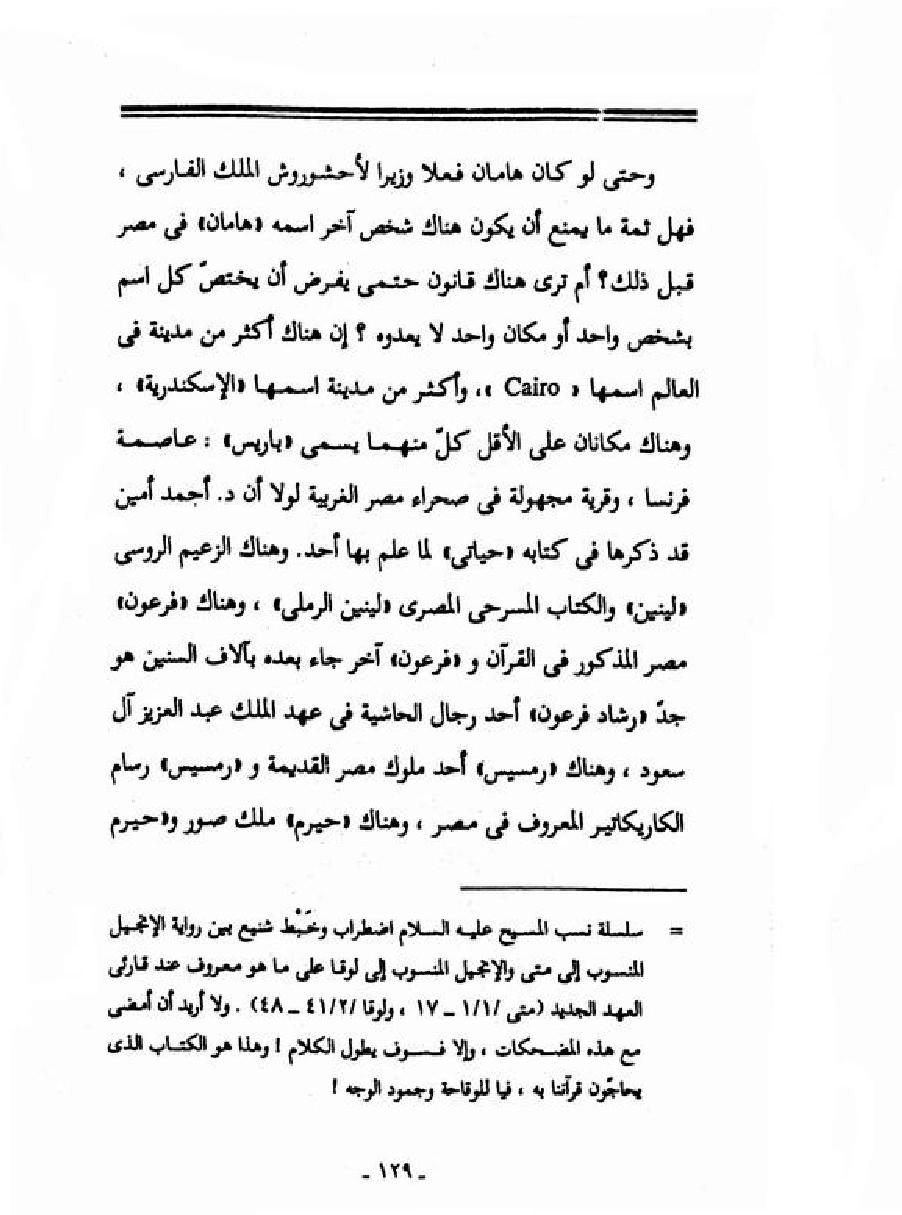 وحتى لو كان هامان فعلا وزيرا لأحشوروش الملك الفارسى ،
فهل ثمة ما يمنع أن يكون هناك شخص آخر اسمه «هامان» فى مصر
قبل ذلك؟ أم ترى هناك قانون حتمى يفرض أن يختصّ كل اسم
بشخص واحد أو مكان واحد لا يعدوه ؟ إن هناك أكثر من مدينة فى
العالم اسمها « Cairo »، وأكثر من مدينة اسمها «الإسكندرية» ،
وهناك مكانان على الأقل كلّ منهما يسمى «باريس» : عاصمة
فرنسا ، وقرية مجهولة فى صحراء مصر الغربية لولا أن د. أحمد أمين
قد ذكرها فى كتابه «حياتى» لما علم بها أحد. وهناك الزعيم الروسى
«لينين» والكتاب المسرحى المصرى «لينين الرملى» ، وهناك «فرعون»
مصر المذكور فى القرآن و «فرعون» آخر جاء بعده بآلاف السنين هو
جدّ «رشاد فرعون» أحد رجال الحاشية فى عهد الملك عبد العزيز آل
سعود ، وهناك «رمسيس» أحد ملوك مصر القديمة و «رمسيس» رسام
الكاريكاتير المعروف فى مصر ، وهناك «حيرم» ملك صور و«حيرم
= سلسلة نسب المسيح عليه السلام اضطراب وخَبْط شنيع بين رواية الإنجيل
المنسوب إلى متى والإنجيل المنسوب إلى لوقا على ما هو معروف عند قارئى
العهد الجديد (متى /١/١ ـ ١٧ ، ولوقا /٤١/٢ ـ ٤٨) . ولا أريد أن أمضى
مع هذه المضحكات ، وإلا فسوف يطول الكلام ! وهذا هو الكتاب الذى
يحاجّون قرآننا به ، فيا للوقاحة وجمود الوجه !
ـ ١٢٩ ـ